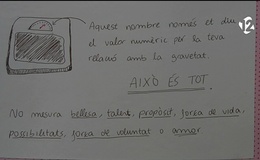 Aquest nombre només et diu
el valor numèric per la teva
relació amb la gravetat.
AIXÒ ÉS TOT.
No mesura bellesa, talent, propòsit, força de vida,
possibilitats, força de voluntat o amor